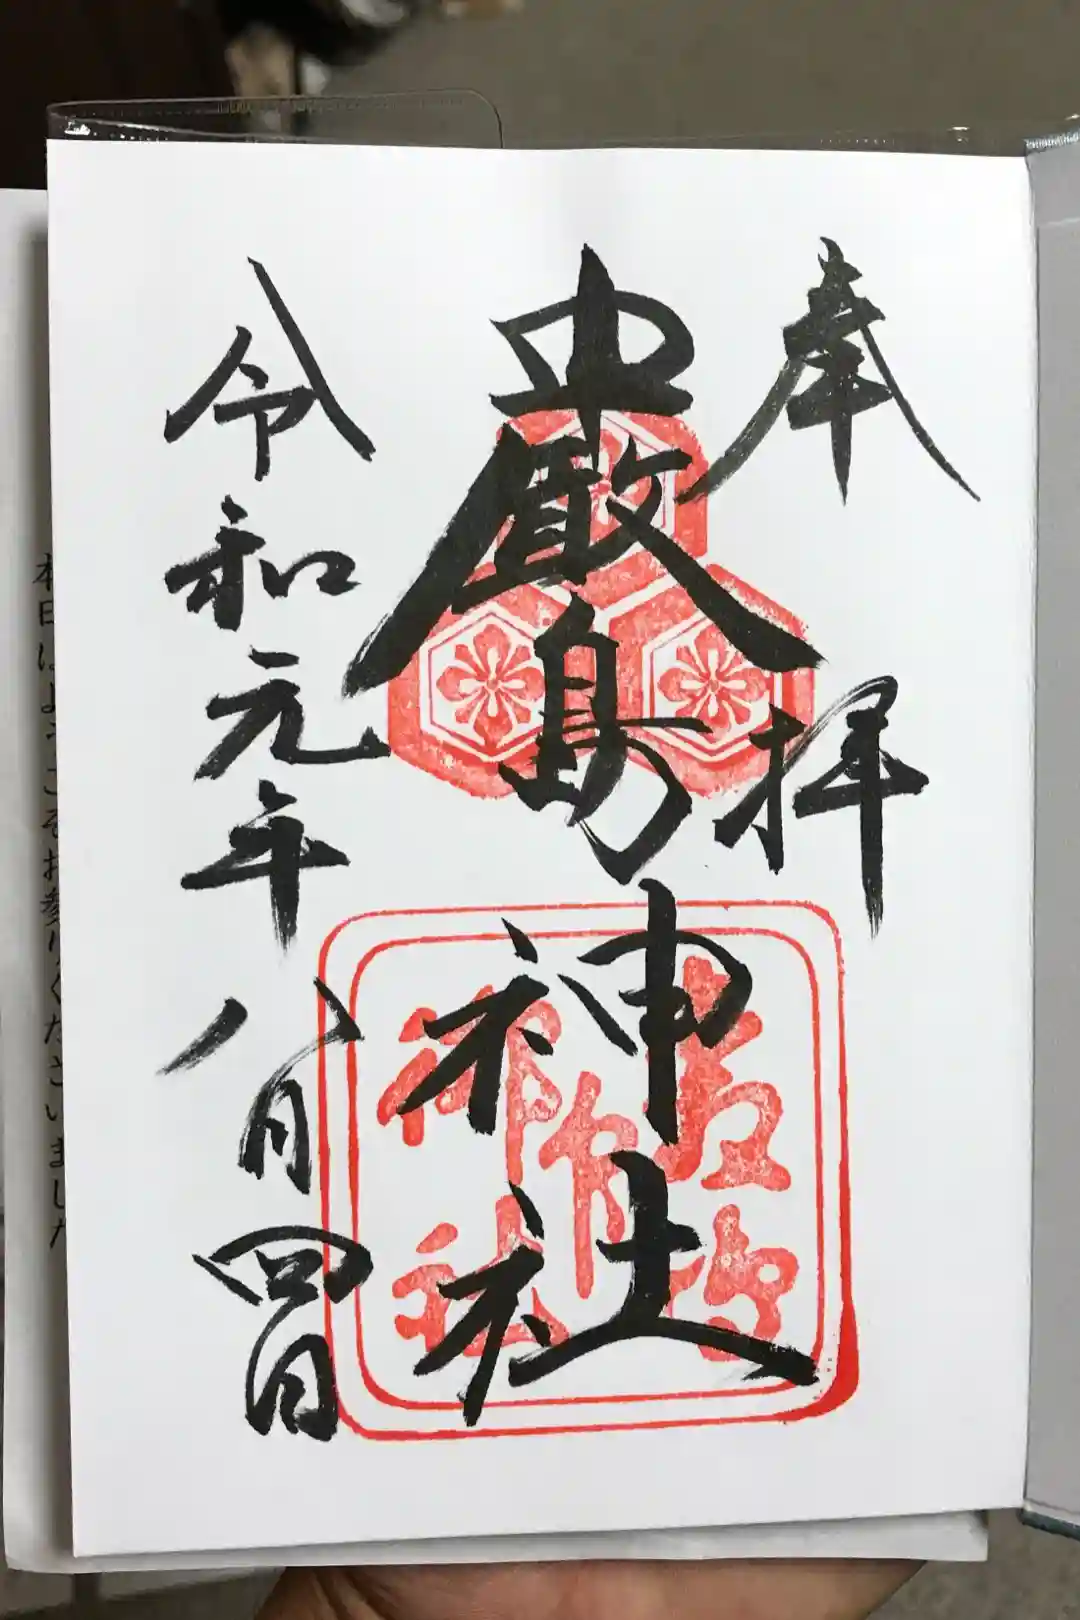 奉拝
嚴島神社
令和元年八月四日
本日はようこそお参りくださいました